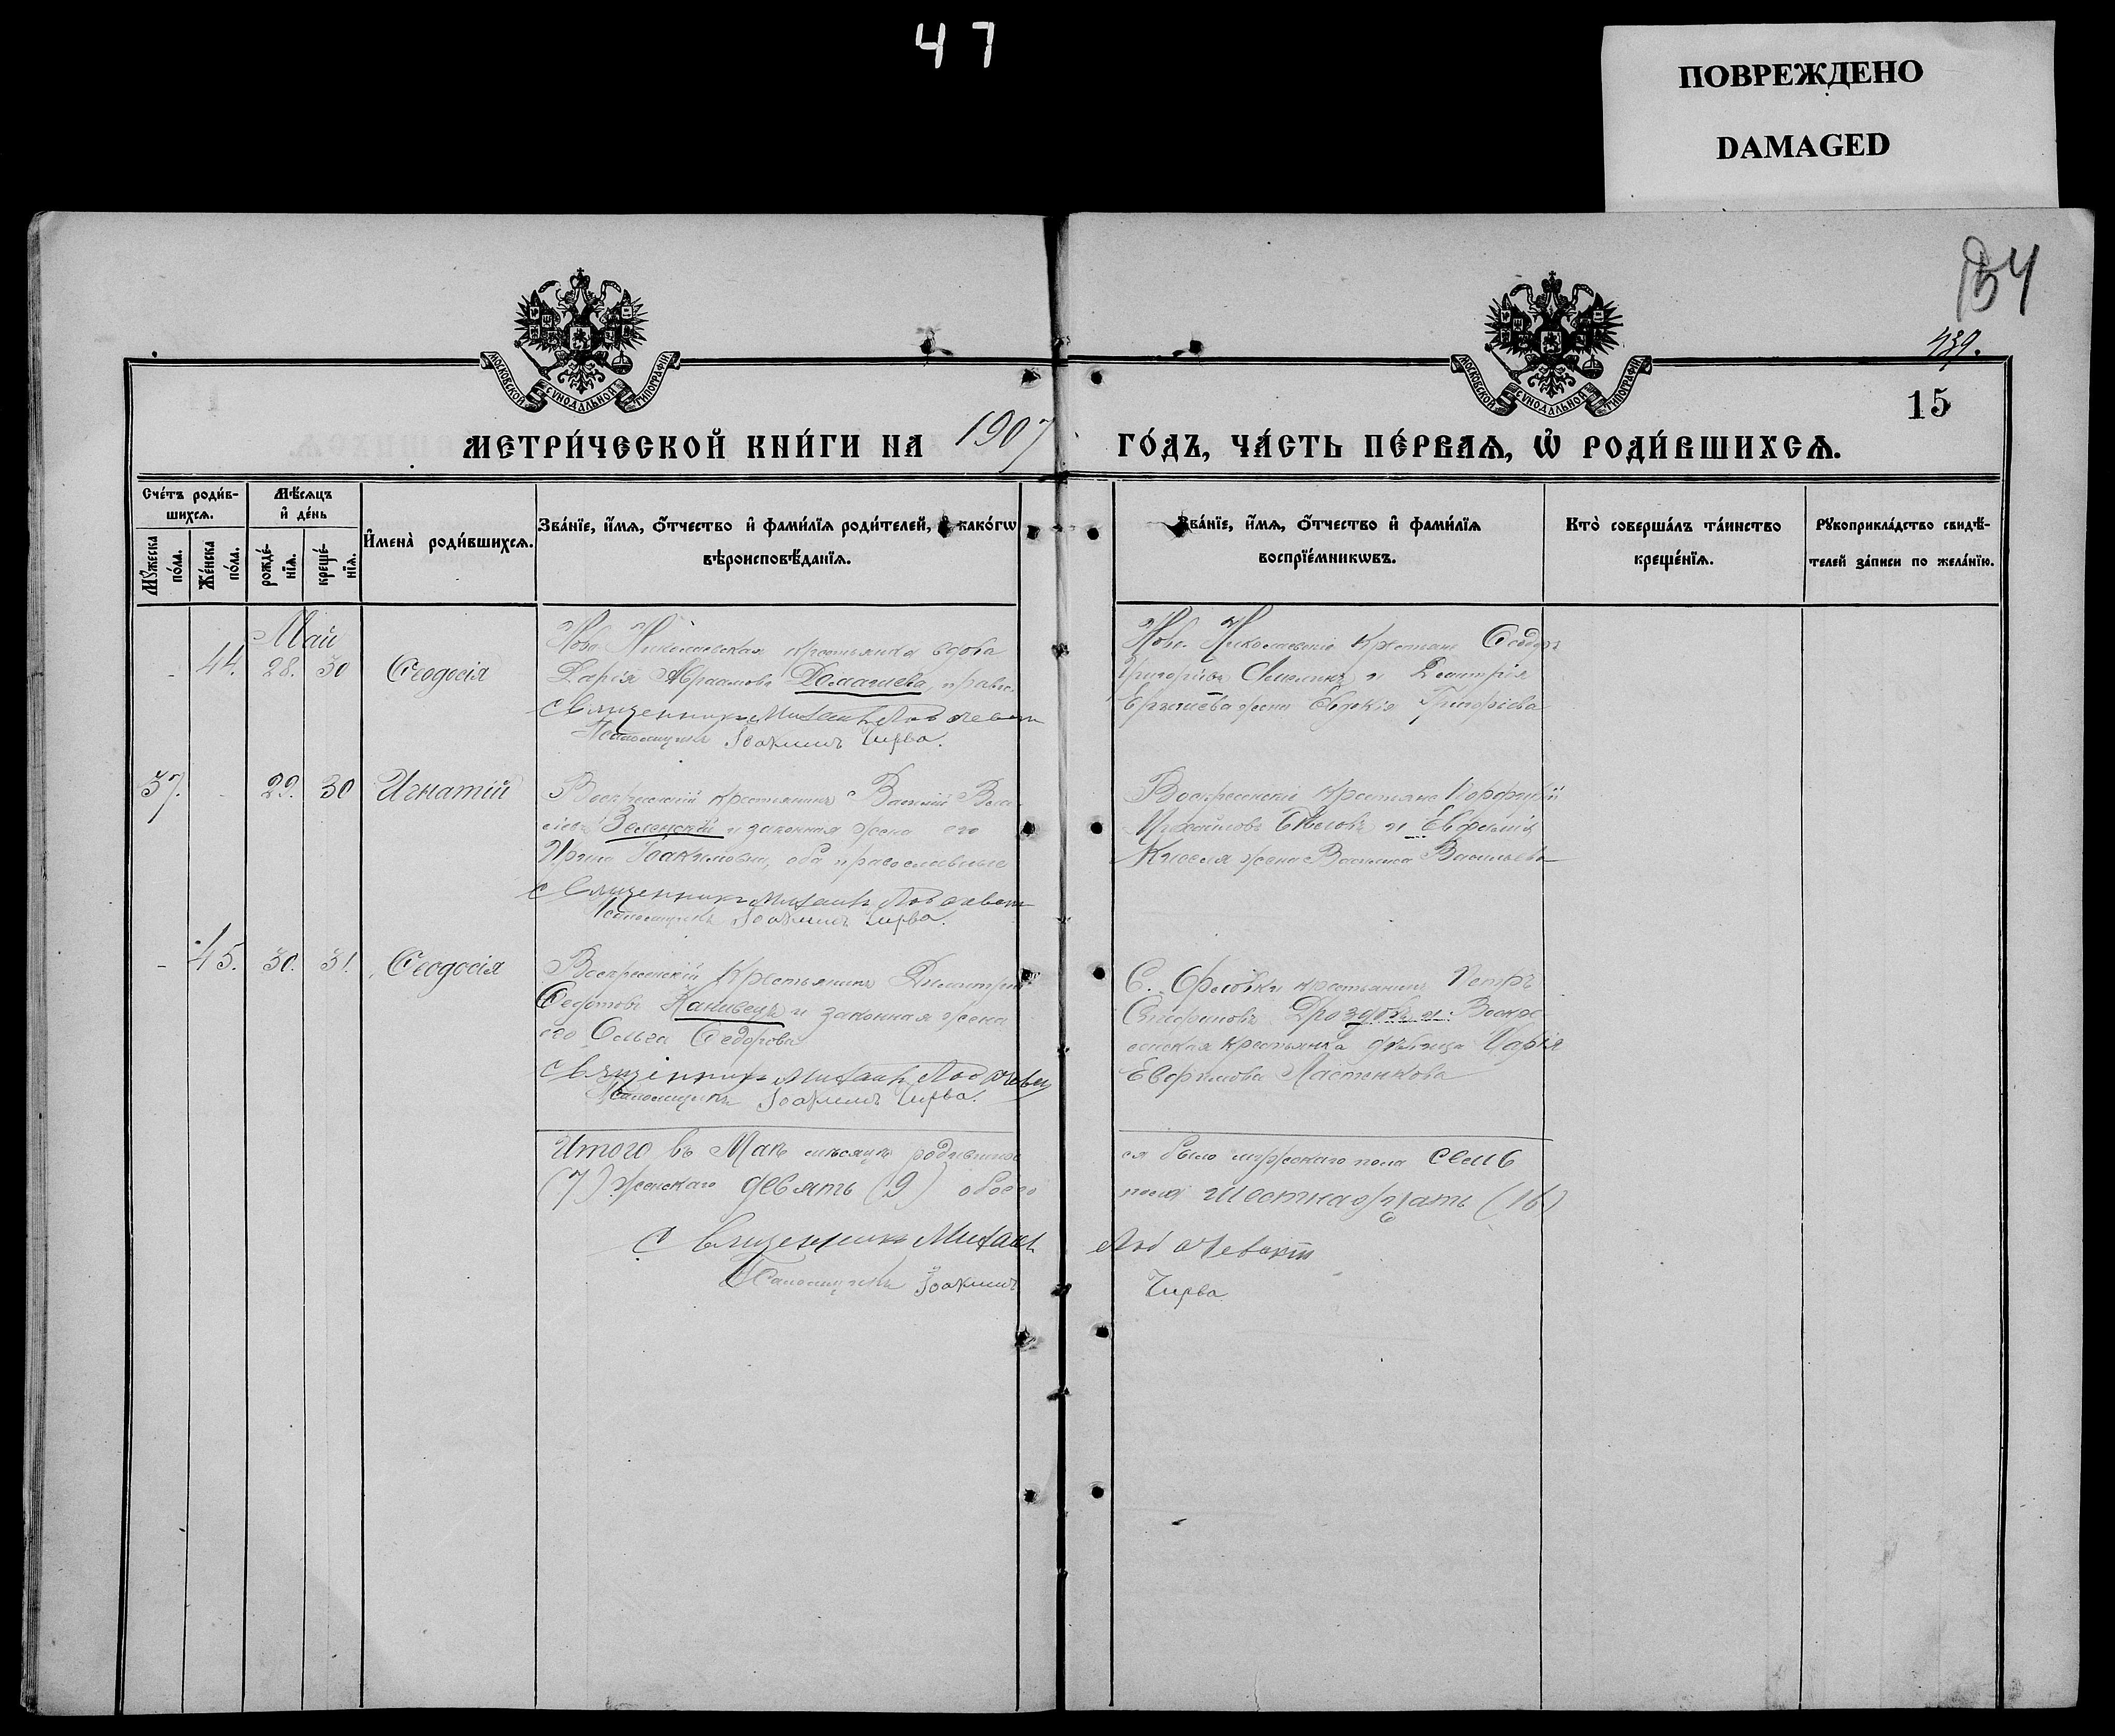 47
ПОВРЕЖДЕНО
DAMAGED
134
439.
15
МОСКОВСКОЙ СѴНОДАЛЬНОЙ ТИПОГРАФІИ
МОСКОВСКОЙ СѴНОДАЛЬНОЙ ТИПОГРАФІИ
МЕТРИ́ЧЕСКОЙ КНИ́ГИ НА 1907 ГО́ДЪ, ЧА́СТЬ ПЕ́РВАѦ, Ѡ҆ РОДИ́ВШИХСѦ.
Сче́тъ роди́в-
шихсѧ.
Мꙋ́жеска по́ла.
Же́нска по́ла.
Мѣ́сѧцъ
и҆ де́нь
рожде́-нїѧ.
креще́-нїѧ.
И҆мена̀ роди́вшихсѧ.
Зва́нїе, и҆́мѧ, ѻ҆́тчество и҆ фами́лїѧ роди́телей, и҆ како́гѡ
вѣроисповѣ́данїѧ.
Зва́нїе, и҆́мѧ, ѻ҆́тчество и҆ фами́лїѧ
воспрїе́мникѡвъ.
Кто̀ соверша́лъ та́инство
креще́нїѧ.
Рꙋкоприкла́дство свидѣ́-
телей за́писи по жела́нїю.
Май
- 44. 28. 30 Ѳеодосія
Ново Николаевская крестьянка вдова
Дарія Авраамова, правос.
Священникъ Михаилъ
Псаломщикъ Іоакимъ Чирва.
Ново-Николаевскіе крестьяне Ѳеодоръ
Григоріевъ и Димитрія
жена Евдокія Григоріева
37. - 29. 30 Игнатій
Воскресенскій крестьянинъ Василій Васи-
ліевъ Зеленскій и законная жена его
Ирина Іоакимова, оба православные
Священникъ Михаилъ
Псаломщикъ Іоакимъ Чирва.
Воскресенскіе крестьяне Порфирій
Михайловъ и Евфимія
Киселя жена Василиса Васильева
- 45. 30. 31. Ѳеодосія
Воскресенскій крестьянинъ Димитрій
Ѳедотовъ Канивецъ и законная жена
его Ольга Ѳедорова
Священникъ Михаилъ
Псаломщикъ Іоакимъ Чирва.
С. Орловки крестьянинъ Петръ
Стефановъ Дроздовъ и Воскре-
сенская крестьянка дѣвица Марія
Евфимова Ластенкова
Итого въ Маѣ мѣсяцѣ родивших
ся было мужскаго пола семь
(7) женскаго девять (9) обоего
пола шестнадцать (16)
Священникъ Михаилъ
Псаломщикъ Іоакимъ
Чирва